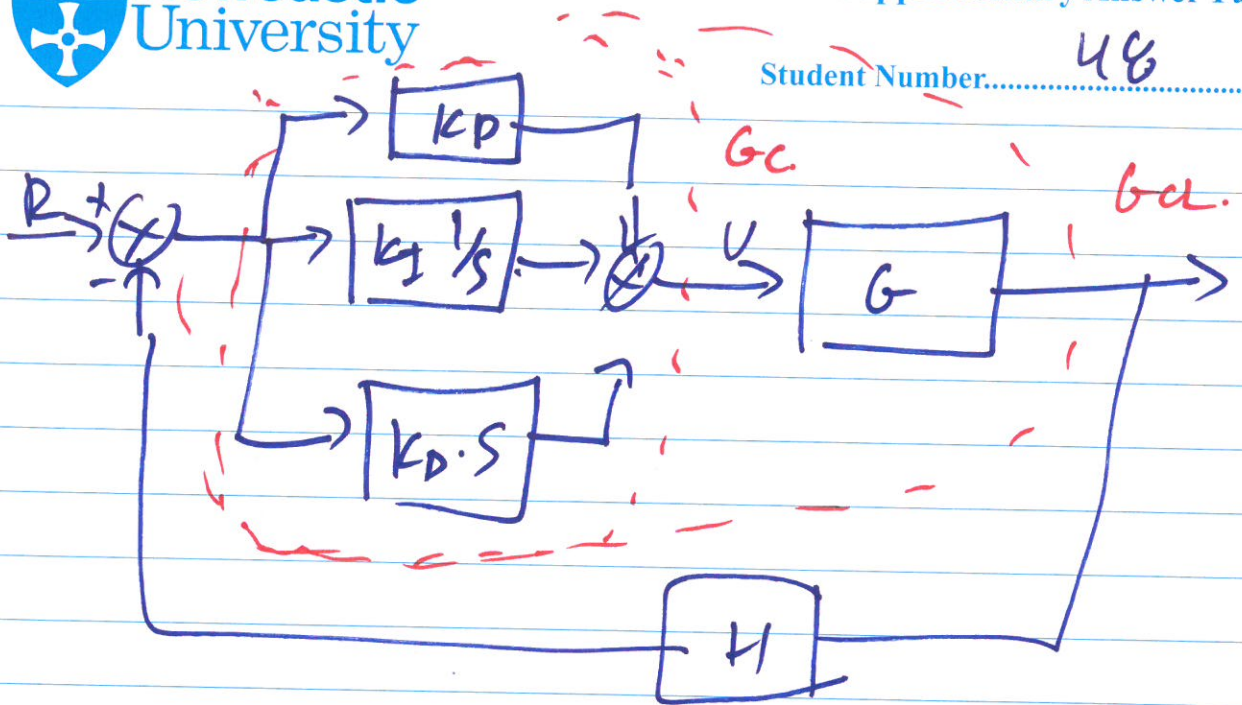 University
Student Number
48
KP
Gc.
R
+
Gcl.
KI 1/S
U
G
-
KD·S
H